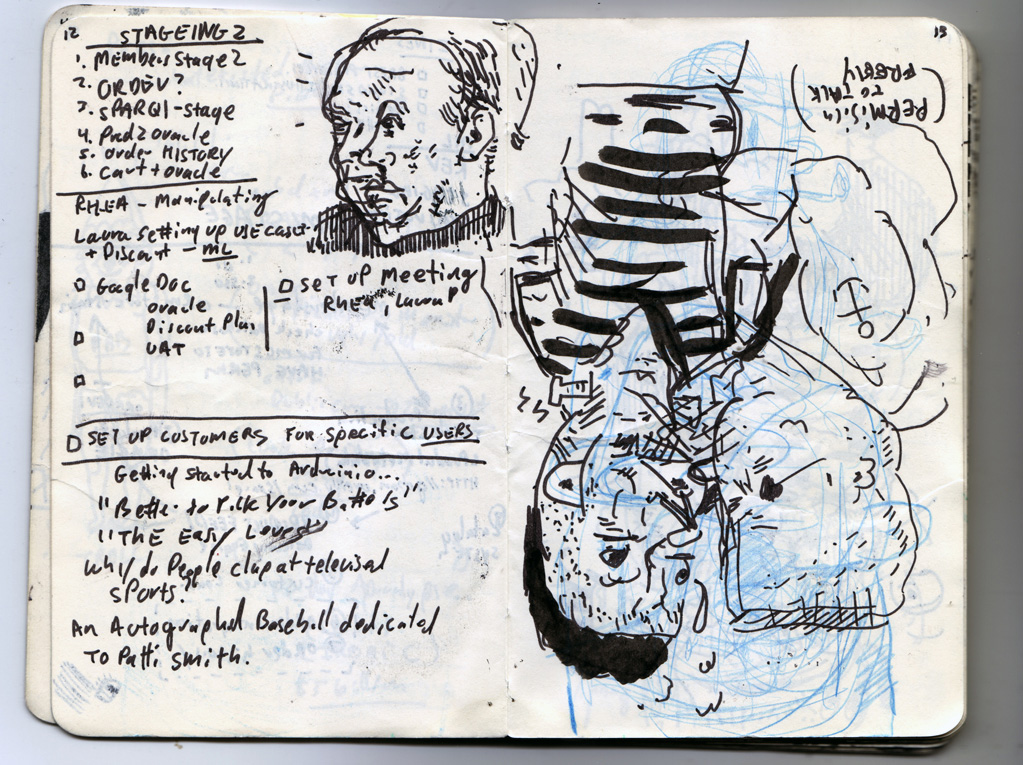 12
STAGEING 2
1. MEMBERS Stage 2
2. ORDEV?
3. SPARQl-stage
4. Prod 2 oracle
5. order HISTORY
6. Cart + oracle
RHEA - Manipulating
Laura Setting up USE cases
+ Discount - ML
Google Doc
oracle
Discount Plus
UAT
SET UP Meeting
RHEA, Laura P
SET UP CUSTOMERS FOR SPECIFIC USERS
Getting started to Arduinio...
"Better to Pick Your
"THE EASY
Why do People clap at televised
sports?
An Autographed Baseball dedicated
TO Patti Smith.
13
(PERMISSION
TO TALK
FREELY)